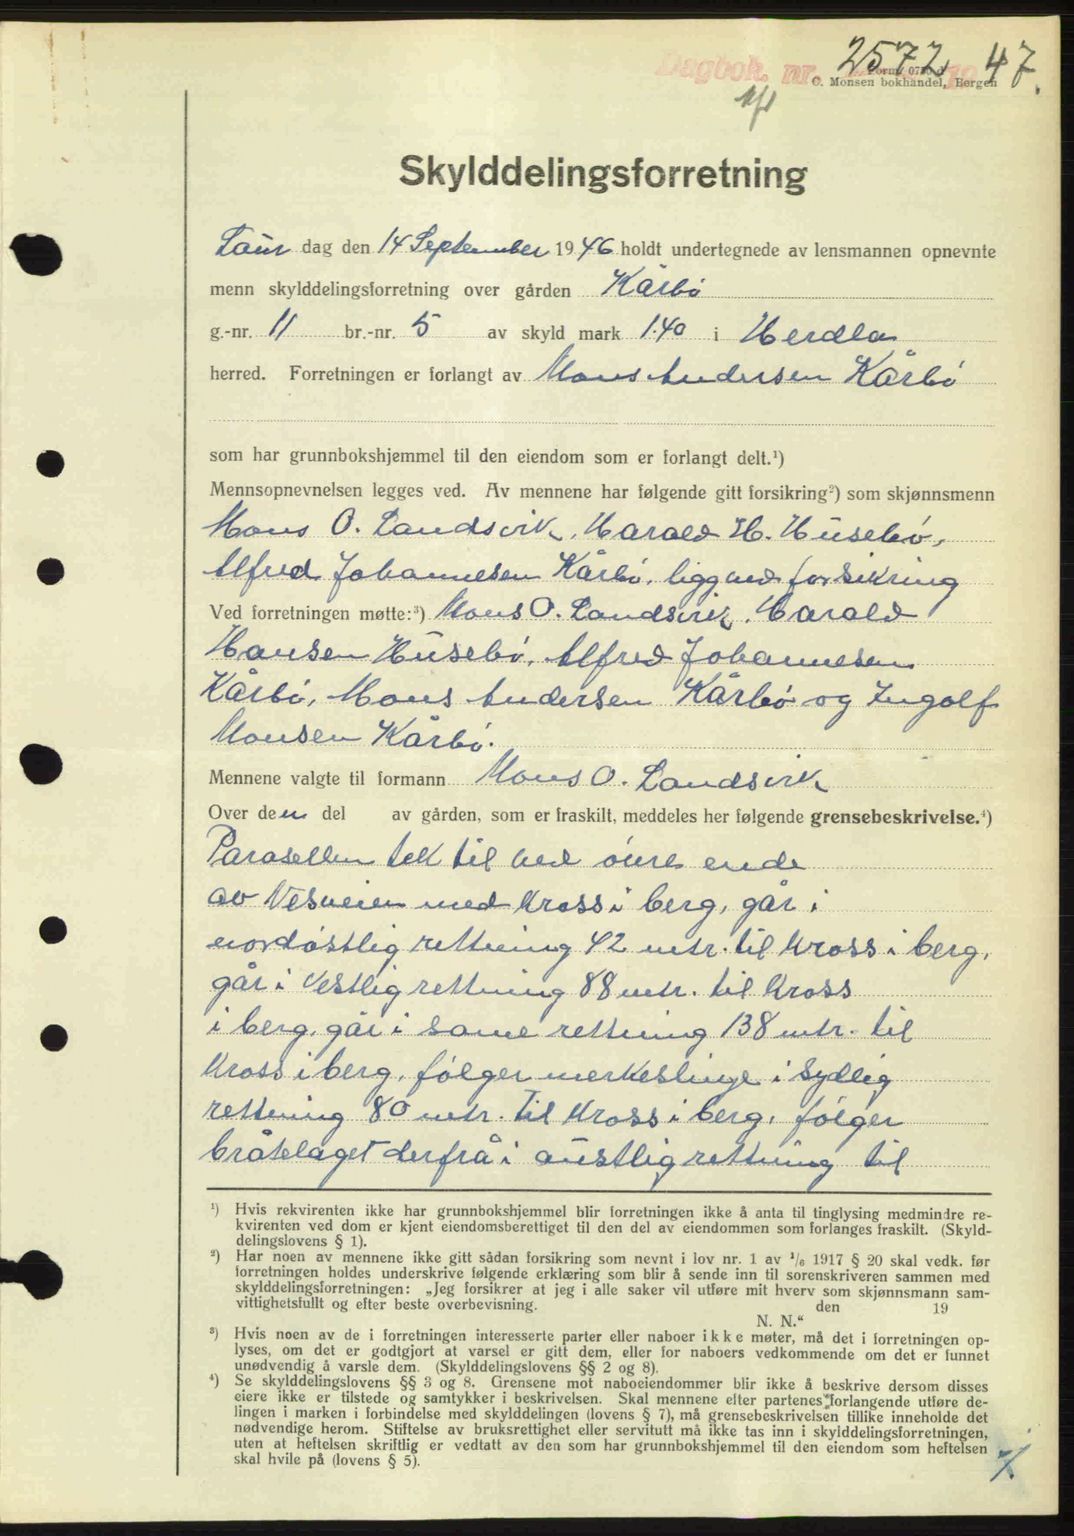 Dagbok. nr. 2572 47.
Form. 0750 d
C. Monsen bokhandel, Bergen
Skylddelingsforretning
Laur dag den 14 September 1946 holdt undertegnede av lensmannen opnevnte
menn skylddelingsforretning over gården Kårbø
g.-nr. 11 br.-nr. 5 av skyld mark 1.40 i Herdla
herred. Forretningen er forlangt av Mons Andersen Kårbø
som har grunnbokshjemmel til den eiendom som er forlangt delt.¹)
Mennsopnevnelsen legges ved. Av mennene har følgende gitt forsikring²) som skjønnsmenn
Mons O. Landsvik, Harald H. Husebø,
Alfred Johannesen Kårbø, ligg ved forsikring
Ved forretningen møtte:³) Mons O. Landsvik, Harald
Hansen Husebø, Alfred Johannesen
Kårbø, Mons Andersen Kårbø og Ingolf
Monsen Kårbø.
Mennene valgte til formann Mons O. Landsvik
Over den del av gården, som er fraskilt, meddeles her følgende grensebeskrivelse.⁴)
Parasellen tek til ved øvre ende
av Nesveien med kross i berg, går i
nordøstlig rettning 42 mtr. til kross i berg,
går i vestlig rettning 88 mtr. til kross
i berg, går i same rettning 138 mtr. til
kross i berg, følger merkeslinje i sydlig
rettning 80 mtr. til kross i berg, følger
bråtelaget derfrå i austlig rettning til
¹) Hvis rekvirenten ikke har grunnbokshjemmel blir forretningen ikke å anta til tinglysing medmindre re-
kvirenten ved dom er kjent eiendomsberettiget til den del av eiendommen som forlanges fraskilt. (Skyld-
delingslovens § 1).
²) Har noen av mennene ikke gitt sådan forsikring som nevnt i lov nr. 1 av ¹/₆ 1917 § 20 skal vedk. før
forretningen holdes underskrive følgende erklæring som blir å sende inn til sorenskriveren sammen med
skylddelingsforretningen: „Jeg forsikrer at jeg i alle saker vil utføre mit hverv som skjønnsmann sam-
vittighetsfullt og efter beste overbevisning. den 19
N. N.“
³) Hvis noen av de i forretningen interesserte parter eller naboer ikke møter, må det i forretningen op-
lyses, om det er godtgjort at varsel er gitt dem, eller for naboers vedkommende om det er funnet
unødvendig å varsle dem. (Skylddelingslovens §§ 2 og 8).
⁴) Se skylddelingslovens §§ 3 og 8. Grensene mot naboeiendommer blir ikke å beskrive dersom disses
eiere ikke er tilstede og samtykker i beskrivelsen. Skal mennene efter partenes forlangende utføre de-
lingen i marken i forbindelse med skylddelingen (lovens § 7), må grensebeskrivelsen tillike inneholde det
nødvendige herom. Stiftelse av bruksrettighet eller servitutt må ikke tas inn i skylddelingsforretningen,
uten at heftelsen skriftlig er vedtatt av den som har grunnbokshjemmel til den eiendom som heftelsen
skal hvile på (lovens § 5).